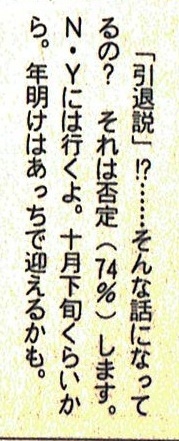 「引退説」!?……そんな話になって
るの？　それは否定（74％）します。
N・Yには行くよ。十月下旬くらいか
ら。年明けはあっちで迎えるかも。